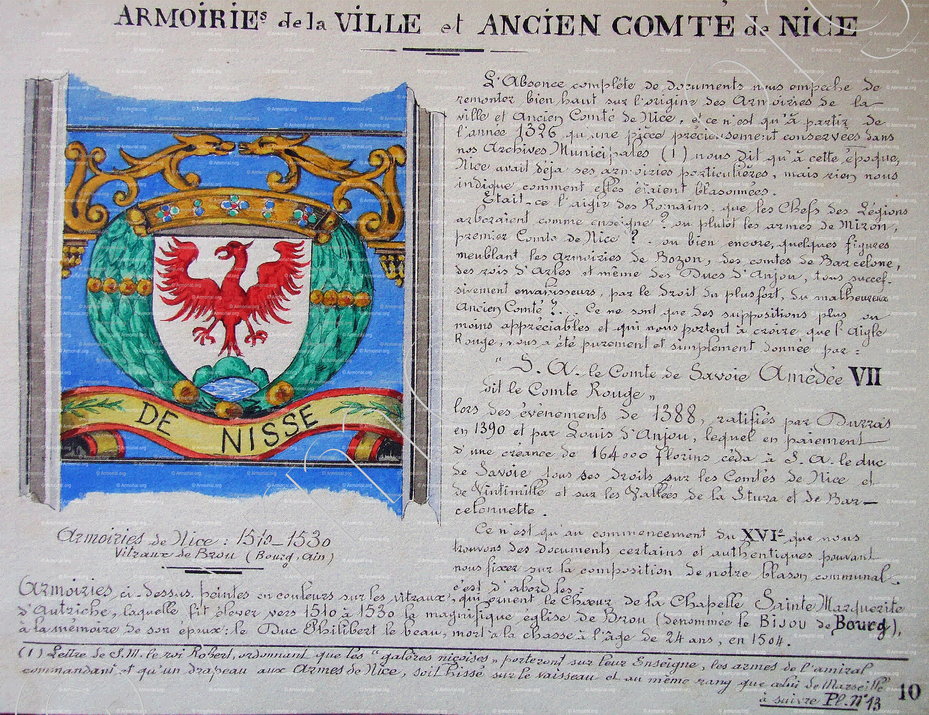 ARMOIRIEs de la VILLE et ANCIEN COMTÉ de NICE
L'Absence complète de documents nous empeche de
remonter bien haut sur l'origine des Armoiries de la
ville et Ancien Comté de Nice, et ce n'est qu'à partir de
l'année 1326 qu'une pièce précieusement conservées dans
nos Archives Municipales (1) nous dit qu'à cette époque,
Nice avait déja ses armoiries particulières, mais rien nous
indique comment elles étaient blasonnées.
Etait-ce l'aigle des Romains, que les Chefs des Légions
arboraient comme enseigne? ou plutot les armes de Miron,
premier Comte de Nice? - ou bien encore, quelques figures
meublant les armoiries de Bozon, des comtes de Barcelone,
des rois d'Arles et même des Ducs d'Anjou, tous succes-
sivement envahisseurs, par le droit du plus fort, du malheureux
Ancien Comté?... Ce ne sont que des suppositions plus ou
moins appréciables et qui nous portent à croire, que l'Aigle
Rouge, nous a été purement et simplement donnée par:
" S. A. le Comte de Savoie Amédée VII
dit le Comte Rouge "
lors des évenements de 1388, ratifiés par Durras
en 1390 et par Louis d'Anjou, lequel en paiement
d'une créance de 164000 florins céda à S. A. le duc
de Savoie tous ses droits sur les Comtés de Nice et
de Vintimille et sur les Vallées de la Stura et de Bar-
celonnette.
Ce n'est qu'au commencement du XVIe que nous
trouvons des documents certains et authentiques pouvant
nous fixer sur la composition de notre blason communal.
c'est d'abord les:
DE NISSE
Armoiries de Nice: 1510-1530
Vitraux de Brou (Bourg, Ain)
Armoiries, ci-dessus, peintes en couleurs sur les vitraux, qui ornent le Chœur de la Chapelle Sainte Marguerite
d'Autriche, laquelle, fit élever vers 1510 à 1530 la magnifique église de Brou (denommée le Bijou de Bourg),
à la mémoire de son époux: le Duc Philibert le beau, mort à la chasse à l'âge de 24 ans, en 1504.
(1) Lettre de S.M. le roi Robert, ordonnant que les "galères niçoises" porteront sur leur Enseigne, les armes de l'amiral
commandant et qu'un drapeau aux Armes de Nice, soit hissé sur le vaisseau et au même rang que celui de Marseille
à suivre Pl. N° 13
10